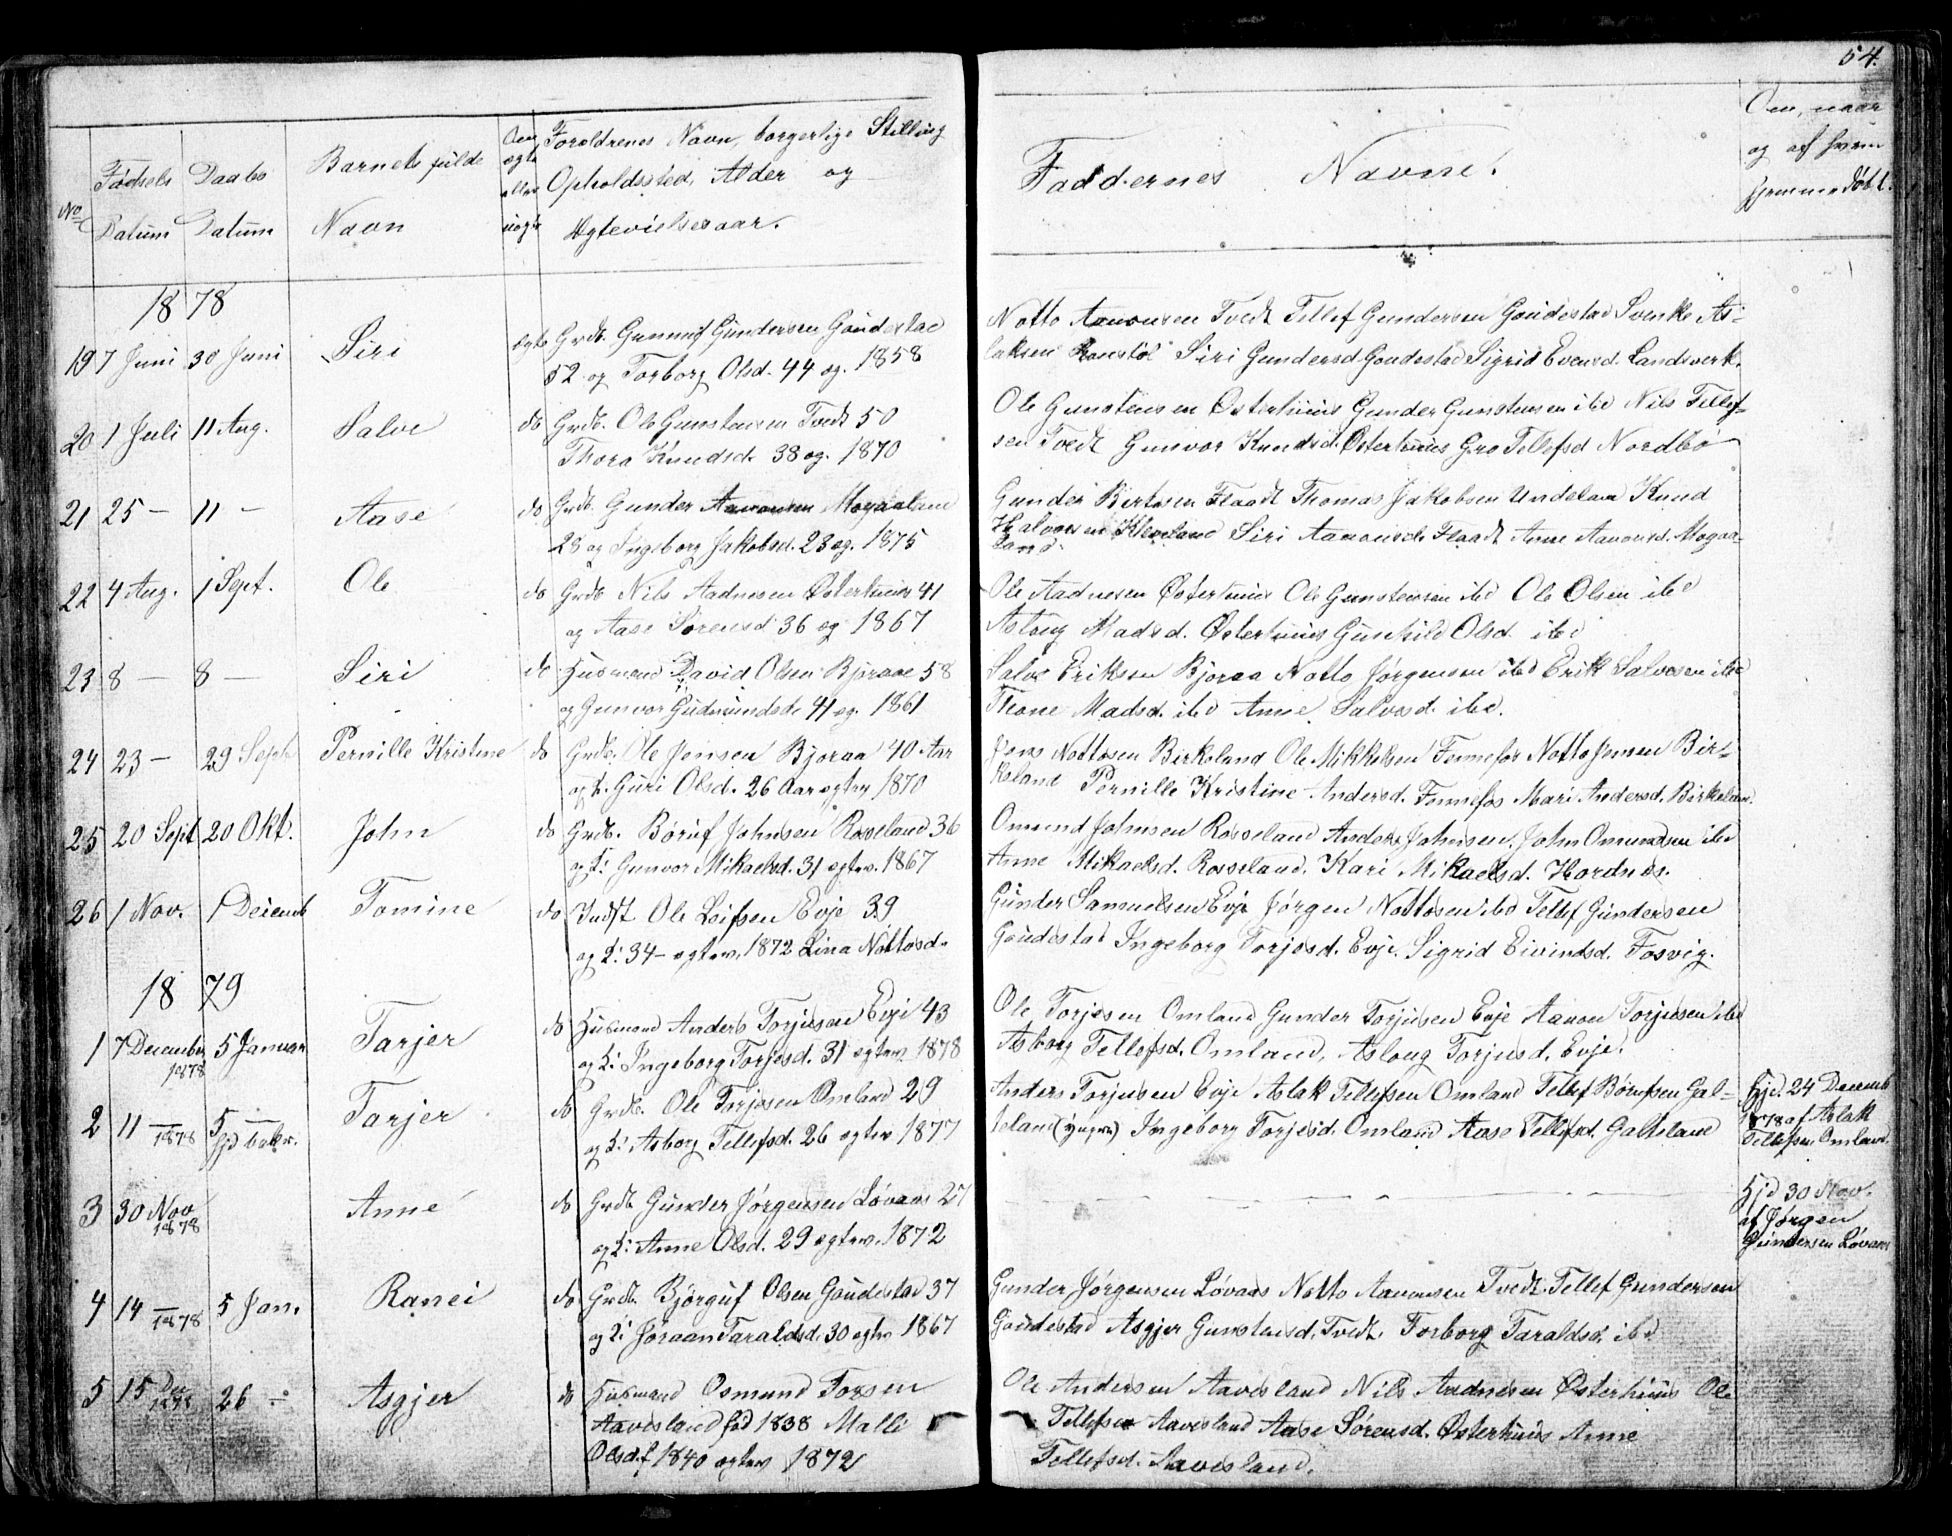 54.
No
Fødsels Datum
Daabs Datum
Barnets fulde Navn
Om ægte eller uægte
Forældrenes Navn, borgerlige Stilling
Opholdssted, Alder og
Ægtevielsesaar.
Faddernes Navne.
Om, naar
og af hvem
hjemmedøbt.
1878
19 7 Juni 30 Juni Siri ægte Grdb. Gunnuf Gundersen Gaudestad
52 og Torborg Olsd. 44 æg. 1858
Notto Aanonsen Tvedt Tellef Gundersen Gaudestad Svenke As-
laksen Siri Gundersd Gaudestad Sigrid Evensd. Landsverk.
20 1 Juli 11 Aug. Salve do Grdb. Ole Gunstensen Tvedt 50
Thora Knudsd. 38 æg. 1870
Ole Gunstensen Østerhuus Gunder Gunstensen ibd Nils Tellef-
sen Tvedt Gunvor Knudsd. Østerhuus Gro Tellefsd Nordbø
21 25 — 11 — Aase do Grdb. Gunder Aanonsen Mogaaland
28 og Ingeborg Jakobsd. 23 æg. 1875
Gunder Flaadt Thomas Jakobsen Undeland Knud
Halvorsen Kleveland Siri Aanonsd. Flaadt Anne Aanonsd. Mogaa-
land.
22 4 Aug. 1 Sept. Ole do Grdb Nils Aadnesen Østerhuus 41
og Aase Sørensd 36 æg 1867
Ole Aadnesen Østerhuus Ole Gunstensen ibd Ole Olsen ibd
Aslaug Madsd. Østerhuus Gunhild Olsd. ibd
23 8 — 8 — Siri do Husmand David Olsen Bjoraae 58
og Gunvor Gudmundsd. 41 æg. 1861
Salve Eriksen Bjoraa Notto Jørgensen ibd Erik Salvesen ibd
Thone Madsd. ibd Anne Salvesd. ibd.
24 23 — 29 Sept Pernille Kristine do Grdb. Ole Jensen Bjoraa 40 Aar
og K. Guri Olsd. 26 Aar ægtev 1870
Jens Nottosen Birkeland Ole Mikkelsen Fennefos Notto Jensen Bir-
keland Pernille Kristine Andersd. Fennefos Mari Andersd. Birkeland.
25 20 Sept 20 Okt. John do Grdb. Børuf Johnsen Rosseland 36
og K: Gunvor Mikaelsd. 31 ægtev. 1867
Omund Johnsen Rosseland Anders Johnsen, John Omundsen ibd
Anne Mikaelsd. Rosseland, Kari Mikaelsd. Hordnes.
26 1 Nov. 1 Decemb Tomine do Indst Ole Leifsen Evje 39
og K: 34 — ægtev. 1872 Lina Nottosd.
Gunder Samuelsen Evje Jørgen Nottosen ibd Tellef Gundersen
Gaudestad Ingeborg Torjesd. Evje. Sigrid Eivindsd. Fosvig.
1879
1 7 December 1878 5 Januar Tarjer do Husmand Anders Torjusen Evje 43
og K: Ingeborg Torjesd. 31 ægtev 1878
Ole Torjesen Omland Gunder Torjusen Evje Aanon Torjusen ibd
Asborg Tellefsd. Omland, Aslaug Torjusd. Evje.
2 11 — 1878 5 — Hjd bekr. Tarjer do Grdb. Ole Torjesen Omland 29
og K: Asborg Tellefsd. 26 ægtev 1877
Anders Torjusen Evje Aslak Tellefsen Omland Tellef Børufsen Gal-
teland (yngre) Ingeborg Torjesd. Omland Aase Tellefsd. Galteland
Hjd. 24 Decemb
1878 af Aslak
Tellefsen Omland.
3 30 Nov 1878 Anne do Grdb Gunder Jørgensen Løvaas 27
og K: Anne Olsd. 29 ægtev. 1872
Hjd 30 Nov.
af Jørgen
Gundersen Løvaas
4 14 — 1878 5 Jan. Ranei do Grdb. Bjørguf Olsen Gaudestad 37
og K: Jøraan Taraldsd. 30 ægtev 1867
Gunder Jørgensen Løvaas Notto Aanonsen Tvedt. Tellef Gundersen
Gaudestad Asgjer Gunstensd. Tvedt. Torborg Taraldsd. ibd
5 15 Dec 1878 26 — Asgjer do Husmand Osmund Torsen
Aavesland fød 1838 Malli
Olsd. f 1840 ægtev 1872
Ole Andersen Aavesland Nils Aadnesen Østerhuus Ole
Tellefsen Aavesland Aase Sørensd. Østerhuus Anne
Tellefsd. Aavesland.